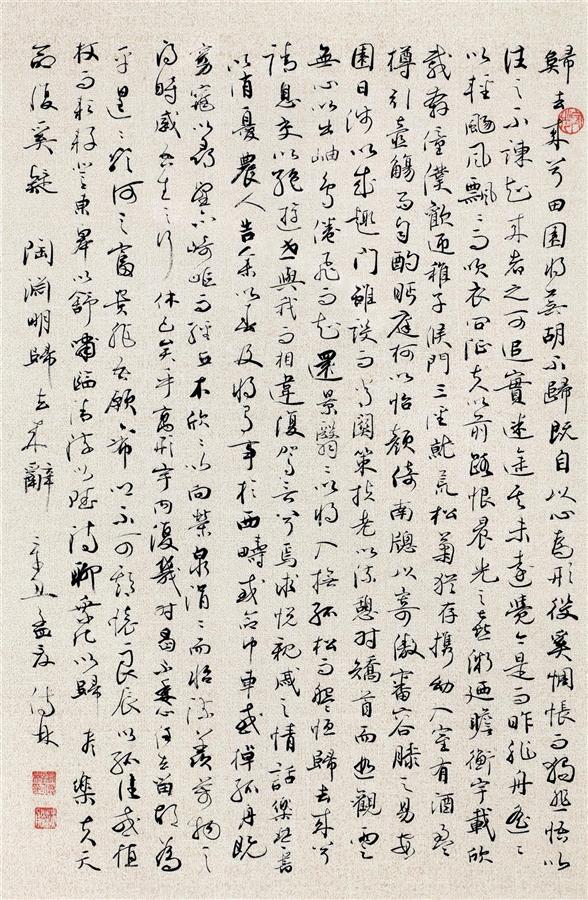 歸去來兮田園將蕪胡不歸既自以心為形役奚惆悵而獨悲悟以
往之不諫知來者之可追實迷途其未遠覺今是而昨非舟遙〻
以輕颺風飄〻而吹衣問征夫以前路恨晨光之熹微迺瞻衡宇載欣
載奔僮僕歡迎稚子候門三逕就荒松菊猶存攜幼入室有酒盈
樽引壺觴而自酌眄庭柯以怡顏倚南牕以寄傲審容膝之易安
園日涉以成趣門雖設而常關策扶老以流憩時矯首而遐觀雲
無心以出岫鳥倦飛而知還景翳〻以將入撫孤松而盤桓歸去來兮
請息交以絕遊世與我而相違復駕言兮焉求悅親戚之情話樂琴書
以消憂農人告余以春及將有事於西疇或命巾車或棹孤舟既
窈窕以尋壑亦崎嶇而經丘木欣〻以向榮泉涓〻而始流羨萬物之
得時感吾生之行休已矣乎寓形宇內復幾時曷不委心任去留胡為
乎遑〻欲何之富貴非吾願帝鄉不可期懷良辰以孤往或植
杖而耘耔登東皋以舒嘯臨清流以賦詩聊乘化以歸盡樂夫天
命復奚疑 陶淵明歸去來辭 辛丑孟夏